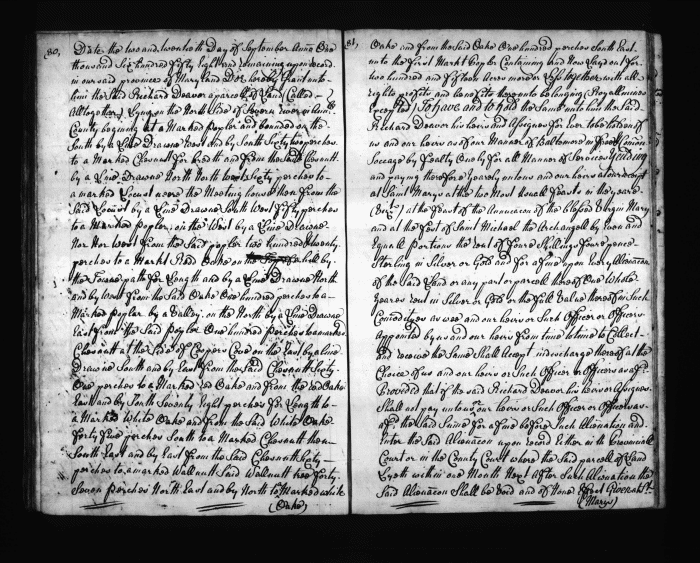 80,
Date the two and twentieth Day of September Anno One
thousand Six hundred fifty Eight and remaining upon record
in our said province of Maryland Doe hereby Grant unto
him the said Richard Deavor a parcell of Land (Called
Alltogether) Lying on the North Side of Severn river in Ann
County begining at a Marked Popler and bounded on the
South by a Line Drawne West and by South Sixty two perches
to a Marked Chesnutt for breadth and from the said Chesnutt
by a Line Drawne North North West Sixty perches to
a marked Locust neere the Meeting house then from the
said Locust by a Line Drawne South West fifty perches
to a Marked Popler, on the West by a Line Drawne
Nor Nor West from the Said popler two hundred & twenty
perches to a Markt Red Oake on by
the path for Length and by a Line Drawne North
and by West from the Said Oake One hundred perches to a
Marked popler by a Valley, on the North by a Line Drawne
East from the Said popler One hundred perches to a marked
Chesnutt at the Side of Coopers Cove on the East by a Line
Drawne South and by East from the Said Chesnutt Sixty
One perches to a Marked red Oake and from the red Oake
East and by South Seventy Eight perches for Length to
a Marked White Oake and from the Said White Oake
forty five perches South to a Marked Chesnutt then
South East and by East from the Said Chesnutt forty
perches to a marked Wallnutt Said Wallnutt tree forty
Seven perches North East and by North to Marked white
(Oake)
81,
Oake and from the Said Oake One hundred perches South East
unto the first Markt Popler Containing and Now Layd out for
two hundred and fifty two Acres more or Less together with all
rights profits and benefits thereunto belonging (Royall mines
excepted) To have and to hold the Same unto him the Said
Richard Deavor his heirs and Assignes for Ever to be holden of
us and our heirs as of our Manor of Baltemore in free & Comon
Soccage by fealty Only for all Manner of Services Yeilding
and paying therefore yearely unto us and our heirs at our receipt
at Saint Marys at the two Most usuall feasts in the yeare
(Vizt) at the feast of the Annunciacon of the Blessed Virgin Mary
and at the feast of Saint Michael the Archangell by Even and
Equall Portions the rent of foure Shillings foure pence
Sterling in Silver or Gold and for a fine upon every Alienacon
of the Said Land or any part or parcell thereof One Whole
Yeares rent in Silver or Gold or the full Value thereof in Such
Comodityes as wee and our heirs or Such Officer or Officers
Appointed by us and our heirs from time to time to Collect
and receive the Same Shall Accept in discharge thereof at the
Choice of us and our heirs or Such Officer or Officers as afd
Provided that if the said Richard Deavor his heirs or Assignes
Shall not pay unto us or our heirs or Such Officer or Officers as
afd the Said Summe for a fine before Such Alienation and
Enter the Said Alienacon upon record Either in the Provinciall
Court or in the County Court where the Said parcell of Land
Lyeth within one Month Next After Such Alienation the
Said Alienacon Shall be Void and of None Effect Given at St.
(Marys)